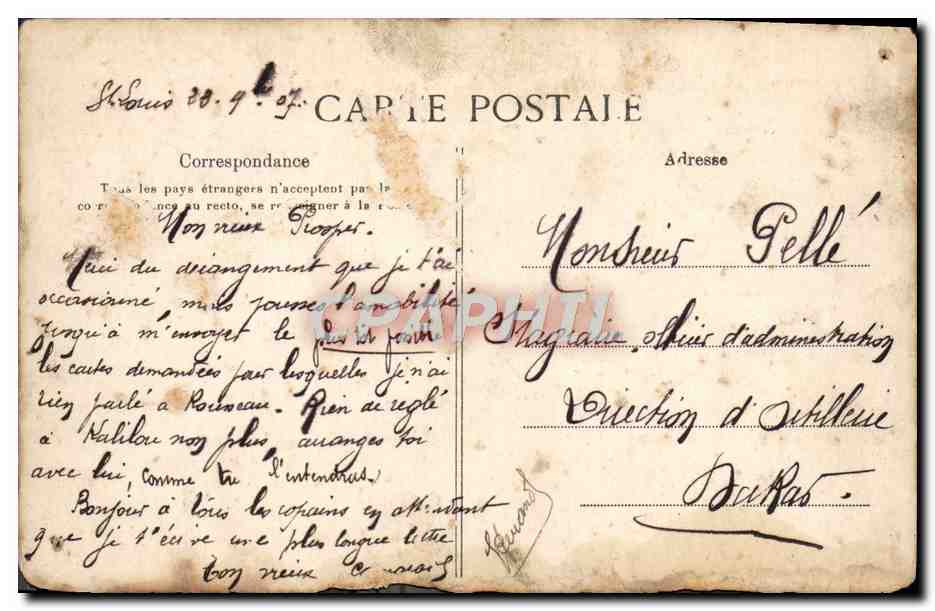 St Louis 23. 9 07.
CARTE POSTALE
Correspondance
Tous les pays étrangers n'acceptent pas la
correspondance au recto, se renseigner à la Poste
Mon vieux Prosper.
Merci du dérangement que je t'ai
occasionné mais pousses l'amabilité
jusqu'à m'envoyer le plus tôt possible
les cartes demandées pour lesquelles je n'ai
rien parlé à Rousseau. Rien de reglé
à Kalilou non plus, arranges toi
avec lui, comme tu l'entendras.
Bonjour à tous les copains en attendant
que je t'écrive une plus longue lettre
Ton vieux
Adresse
Monsieur Pellé
Stagiaire officier d'administration
Direction d'Artillerie
Dakar.
CPAPHIL